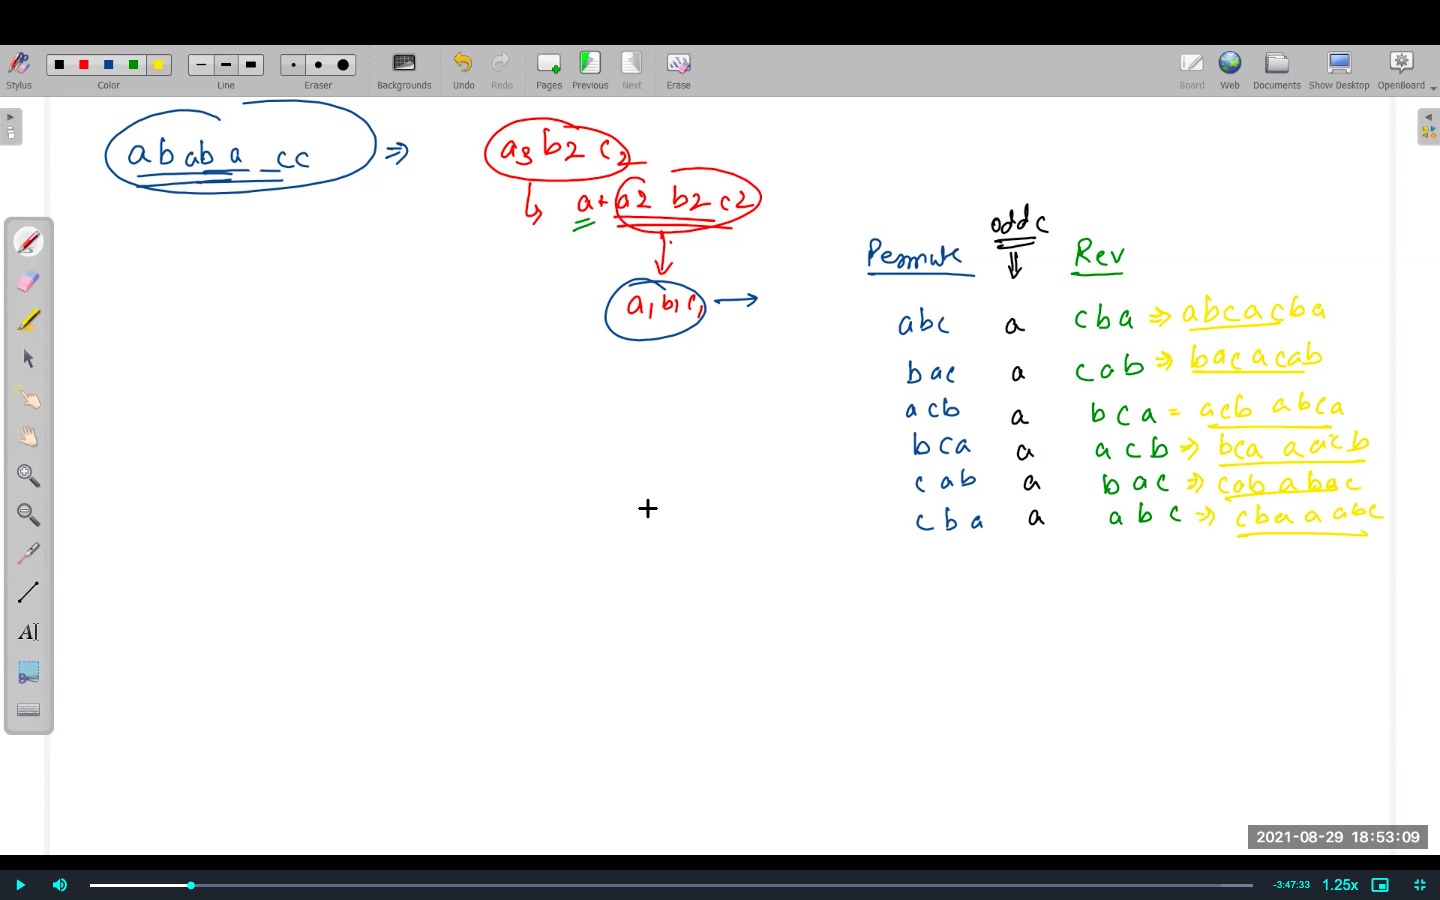 Stylus Color Line Eraser Backgrounds Undo Redo Pages Previous Next Erase Board Web Documents Show Desktop OpenBoard
ab ab a cc ⇒ a3 b2 c2
a + a2 b2 c2
a1 b1 c1 →
odd c
Permute Rev
abc a cba ⇒ abcacba
bac a cab ⇒ bacacab
acb a bca = acb abca
bca a acb ⇒ bca aacb
cab a bac ⇒ cab abac
cba a abc ⇒ cba a abc
2021-08-29 18:53:09
-3:47:33 1.25x